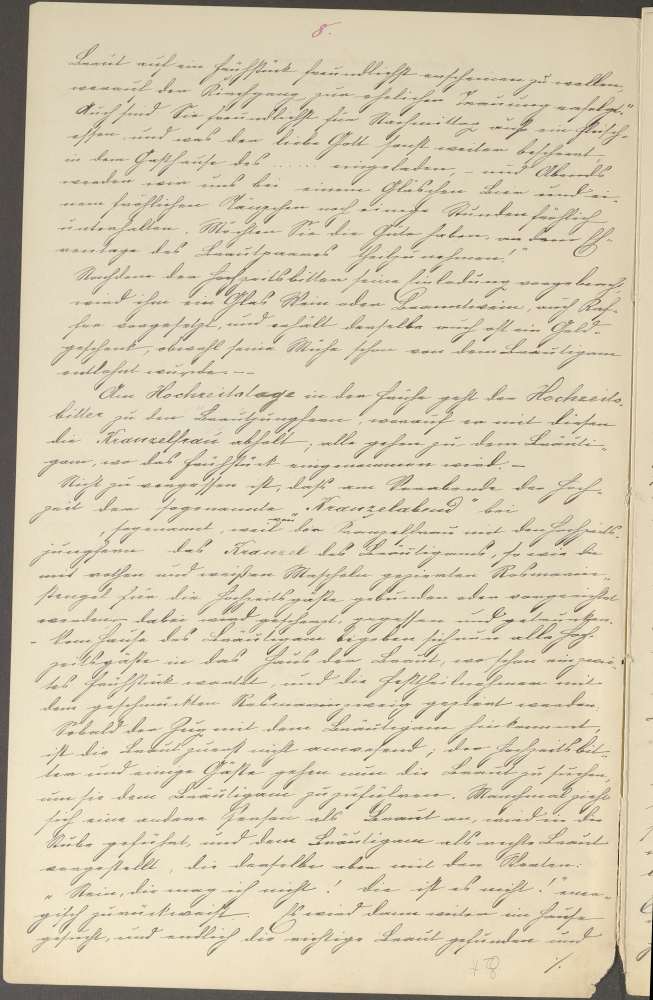 8.
Braut auf ein Frühstück freundlichst erscheinen zu wollen,
worauf der Kirchgang zur ehelichen Trauung erfolgt."
Auch sind Sie freundlichst für Nachmittag auf ein Fleisch-
essen und was der liebe Gott sonst weiter bescheert,
in dem Gasthause des ..... eingeladen, - und Abends
werden wir uns bei einem Gläschen Bier und ei-
nem fröhlichen Tänzchen noch einige Stunden fröhlich
unterhalten. Möchten Sie die Güte haben, an dem Eh-
rentage des Brautpaares theilzunehmen!"
Nachdem der Hochzeitsbitter seine Einladung vorgebracht,
wird ihm ein Glas Wein oder Branntwein, auch Kaf-
fee vorgesetzt, und erhält derselbe auch oft ein Geld-
geschenk, obwohl seine Mühe schon von dem Bräutigam
entlohnt wurde. --
Am Hochzeitstage in der Früh geht der Hochzeits-
bitter zu den Brautjungfern, worauf er mit diesen
die Kranzelfrau abholt; alle gehen zu dem Bräuti-
gam, wo das Frühstück eingenommen wird. -
Nicht zu vergessen ist, daß am Vorabende der Hoch-
zeit der sogenannte "Kranzelabend" bei
, sogenannt, weil von der Kranzelfrau mit den Hochzeits-
jungfern das Kranzel des Bräutigams, so wie die
mit rothen und weißen Mascheln gezierten Rosmarin-
stengel für die Hochzeitsgäste gebunden oder vorgerichtet
werden, dabei wird gescherzt, gegessen und getrunken.
- Vom Hause des Bräutigam begeben sich nun alle Hoch-
zeitsgäste in das Haus der Braut, wo schon ein zwei-
tes Frühstück wartet, und die Festtheilnehmer mit
dem geschmückten Rosmarinzweig geziert werden.
Sobald der Zug mit dem Bräutigam hinkommt,
ist die Braut zuerst nicht anwesend; der Hochzeitsbit-
ter und einige Gäste gehen nun die Braut zu suchen,
um sie dem Bräutigam zuzuführen. Manchmal zieht
sich eine andere Person als Braut an, wird in die
Stube geführt, und dem Bräutigam als rechte Braut
vorgestellt, die derselbe aber mit den Worten:
"Nein, die mag ich nicht! Die ist es nicht!" ener-
gisch zurückweist. Es wird dann weiter im Hause
gesucht, und endlich die richtige Braut gefunden und
./.